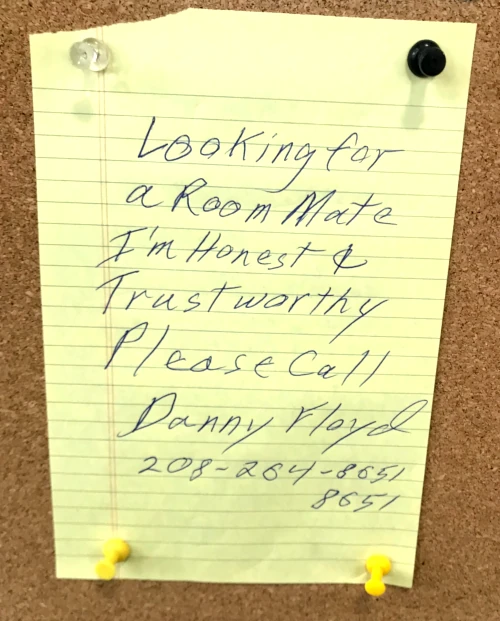 Looking for
a Room Mate
I'm Honest &
Trustworthy
Please Call
Danny Floyd
208-264-8651
8651